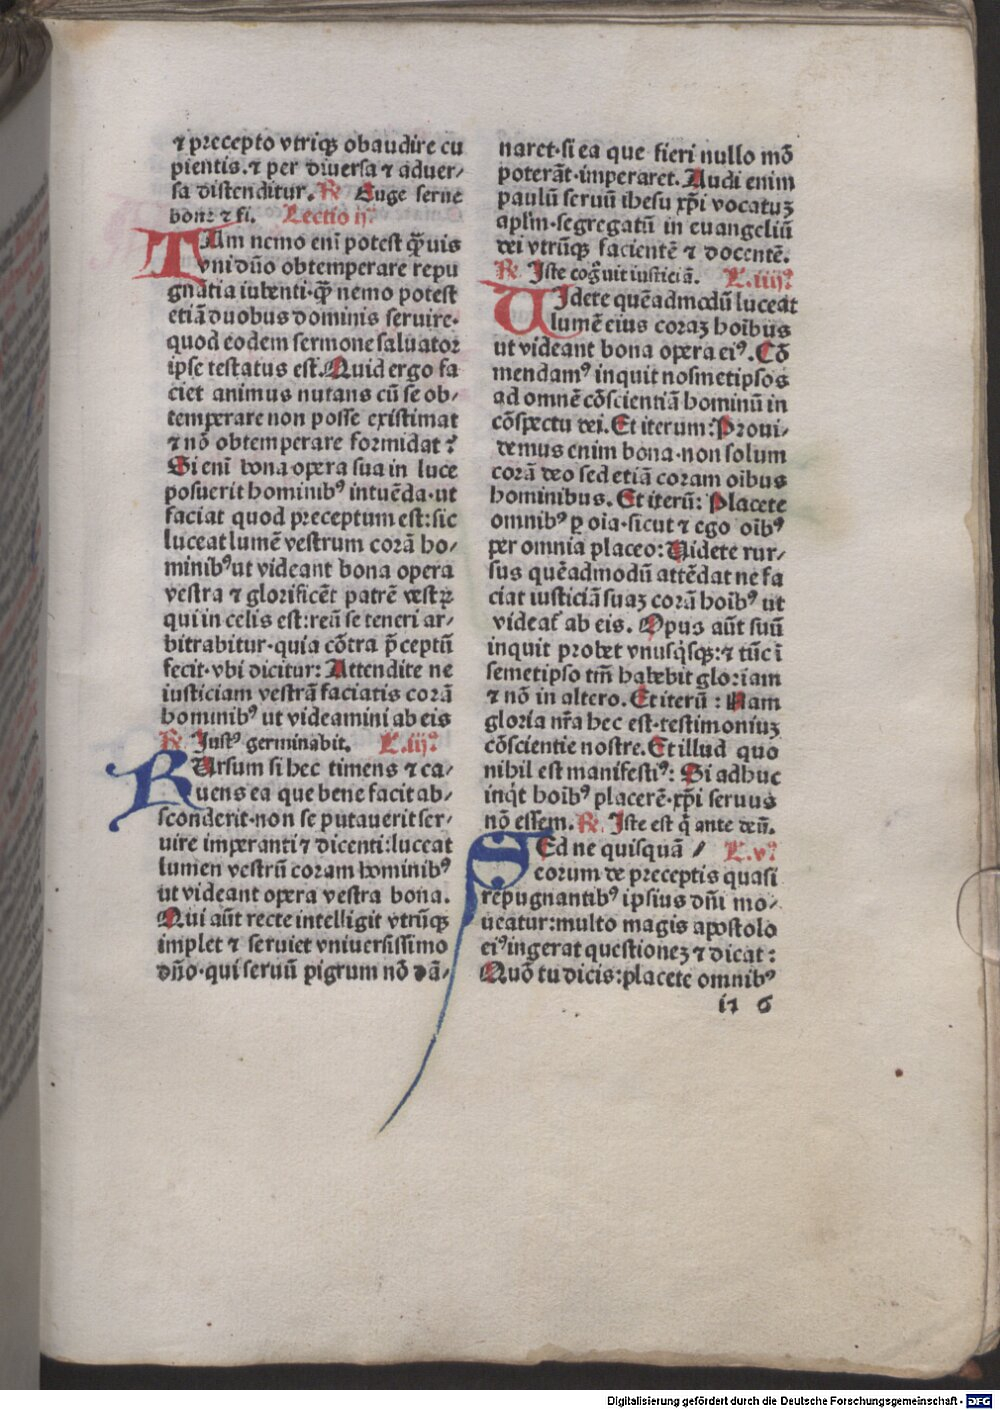 ⁊ precepto vtriq; obaudire cu
pientis. ⁊ per diuersa ⁊ aduer/
sa distenditur. R̄ Euge serue
bone ⁊ fi. Lectio ij.
TAm nemo eni potest q̄uis
vni dño obtemperare repu
gnatia iubenti· q̄ nemo potest
etiā duobus dominis seruire·
quod eodem sermone saluator
ipse testatus est. Quid ergo fa
ciet animus nutans cū se ob/
temperare non posse existimat
⁊ nō obtemperare formidat?
Si enī bona opera sua in luce
posuerit hominibꝰ intuēda· ut
faciat quod preceptum est: sic
luceat lumē vestrum corā ho/
minibꝰ ut videant bona opera
vestra ⁊ glorificēt patrē vestrꝝ
qui in celis est: reā se teneri ar/
bitrabitur· quia cōtra p̄ceptū
fecit· vbi dicitur: Attendite ne
iusticiam vestrā faciatis corā
hominibꝰ ut videamini ab eis
R̄ Justꝰ germinabit. L. iij.
RUrsum si hec timens ⁊ ca/
uens ea que bene facit ab/
sconderit· non se putauerit ser/
uire imperanti ⁊ dicenti: luceat
lumen vestrū coram hominibꝰ
ut videant opera vestra bona.
Qui aūt recte intelligit vtrūq;
implet ⁊ seruiet vniuersissimo
dño· qui seruū pigrum nō dā/
naret· si ea que fieri nullo mō
poterāt· imperaret. Audi enim
paulū seruū ihesu xp̄i vocatuȝ
apl̄m· segregatū in euangeliū
dei vtrūq; facientē ⁊ docentē.
R̄ Iste cog̅uit iusticiā. L. iiij.
UIdete quēadmodū luceat
lumē eius coraȝ hoībus
ut videant bona opera eiꝰ. Cō
mendamꝰ inquit nosmetipsos
ad omnē cōscientiā hominū in
cōspectu dei. Et iterum: Proui/
demus enim bona· non solum
corā deo sed etiā coram oībus
hominibus. Et iterū: Placete
omnibꝰ ꝑ oīa· sicut ⁊ ego oībꝰ
per omnia placeo: Uidete rur/
sus quēadmodū attēdat ne fa
ciat iusticiā suaȝ corā hoībꝰ ut
videat̄ ab eis. Opus aūt suū
inquit probet vnusq̇sq;: ⁊ tūc ī
semetipso tm̄ habebit gloriam
⁊ nō in altero. Et iterū: Nam
gloria nr̄a hec est· testimoniuȝ
cōscientie nostre. Et illud quo
nihil est manifestiꝰ: Si adhuc
inq̇t hoībꝰ placerē· xp̄i seruus
nō essem. R̄. Iste est q̇ ante deū.
SEd ne quisquā // L. v.
eorum de preceptis quasi
repugnantibꝰ ipsius dñi mo/
ueatur: multo magis apostolo
eiꝰ ingerat questioneȝ ⁊ dicat:
Quō tu dicis: placete omnibꝰ
i1 6
Digitalisierung gefördert durch die Deutsche Forschungsgemeinschaft - DFG